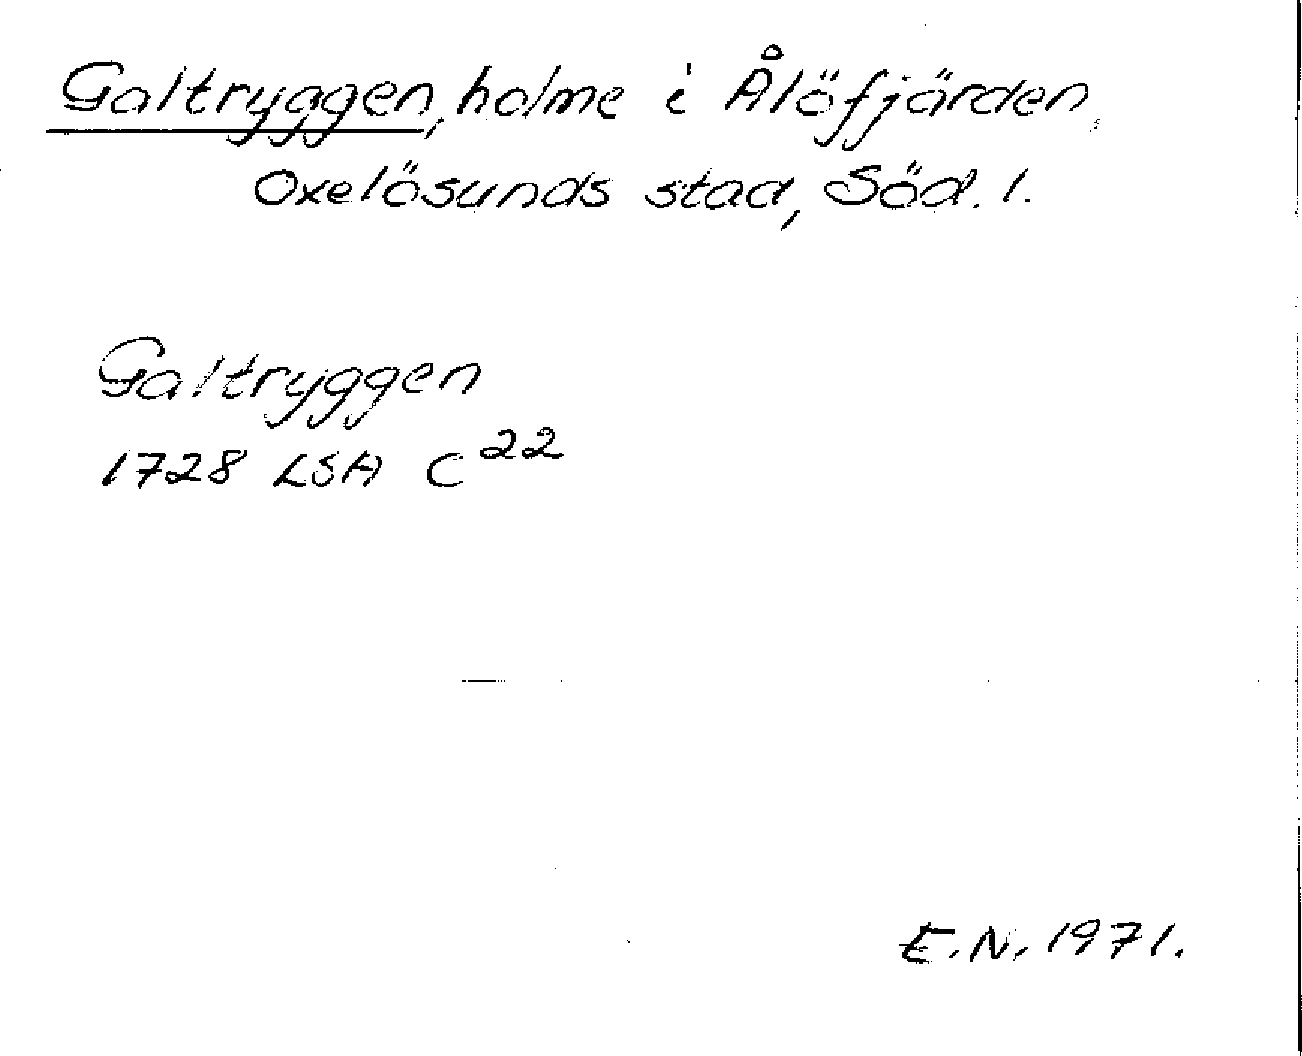 Galtryggen, holme i Ålöfjärden,
Oxelösunds stad, Söd. l.
Galtryggen
1728 LSA C22
E.N. 1971.